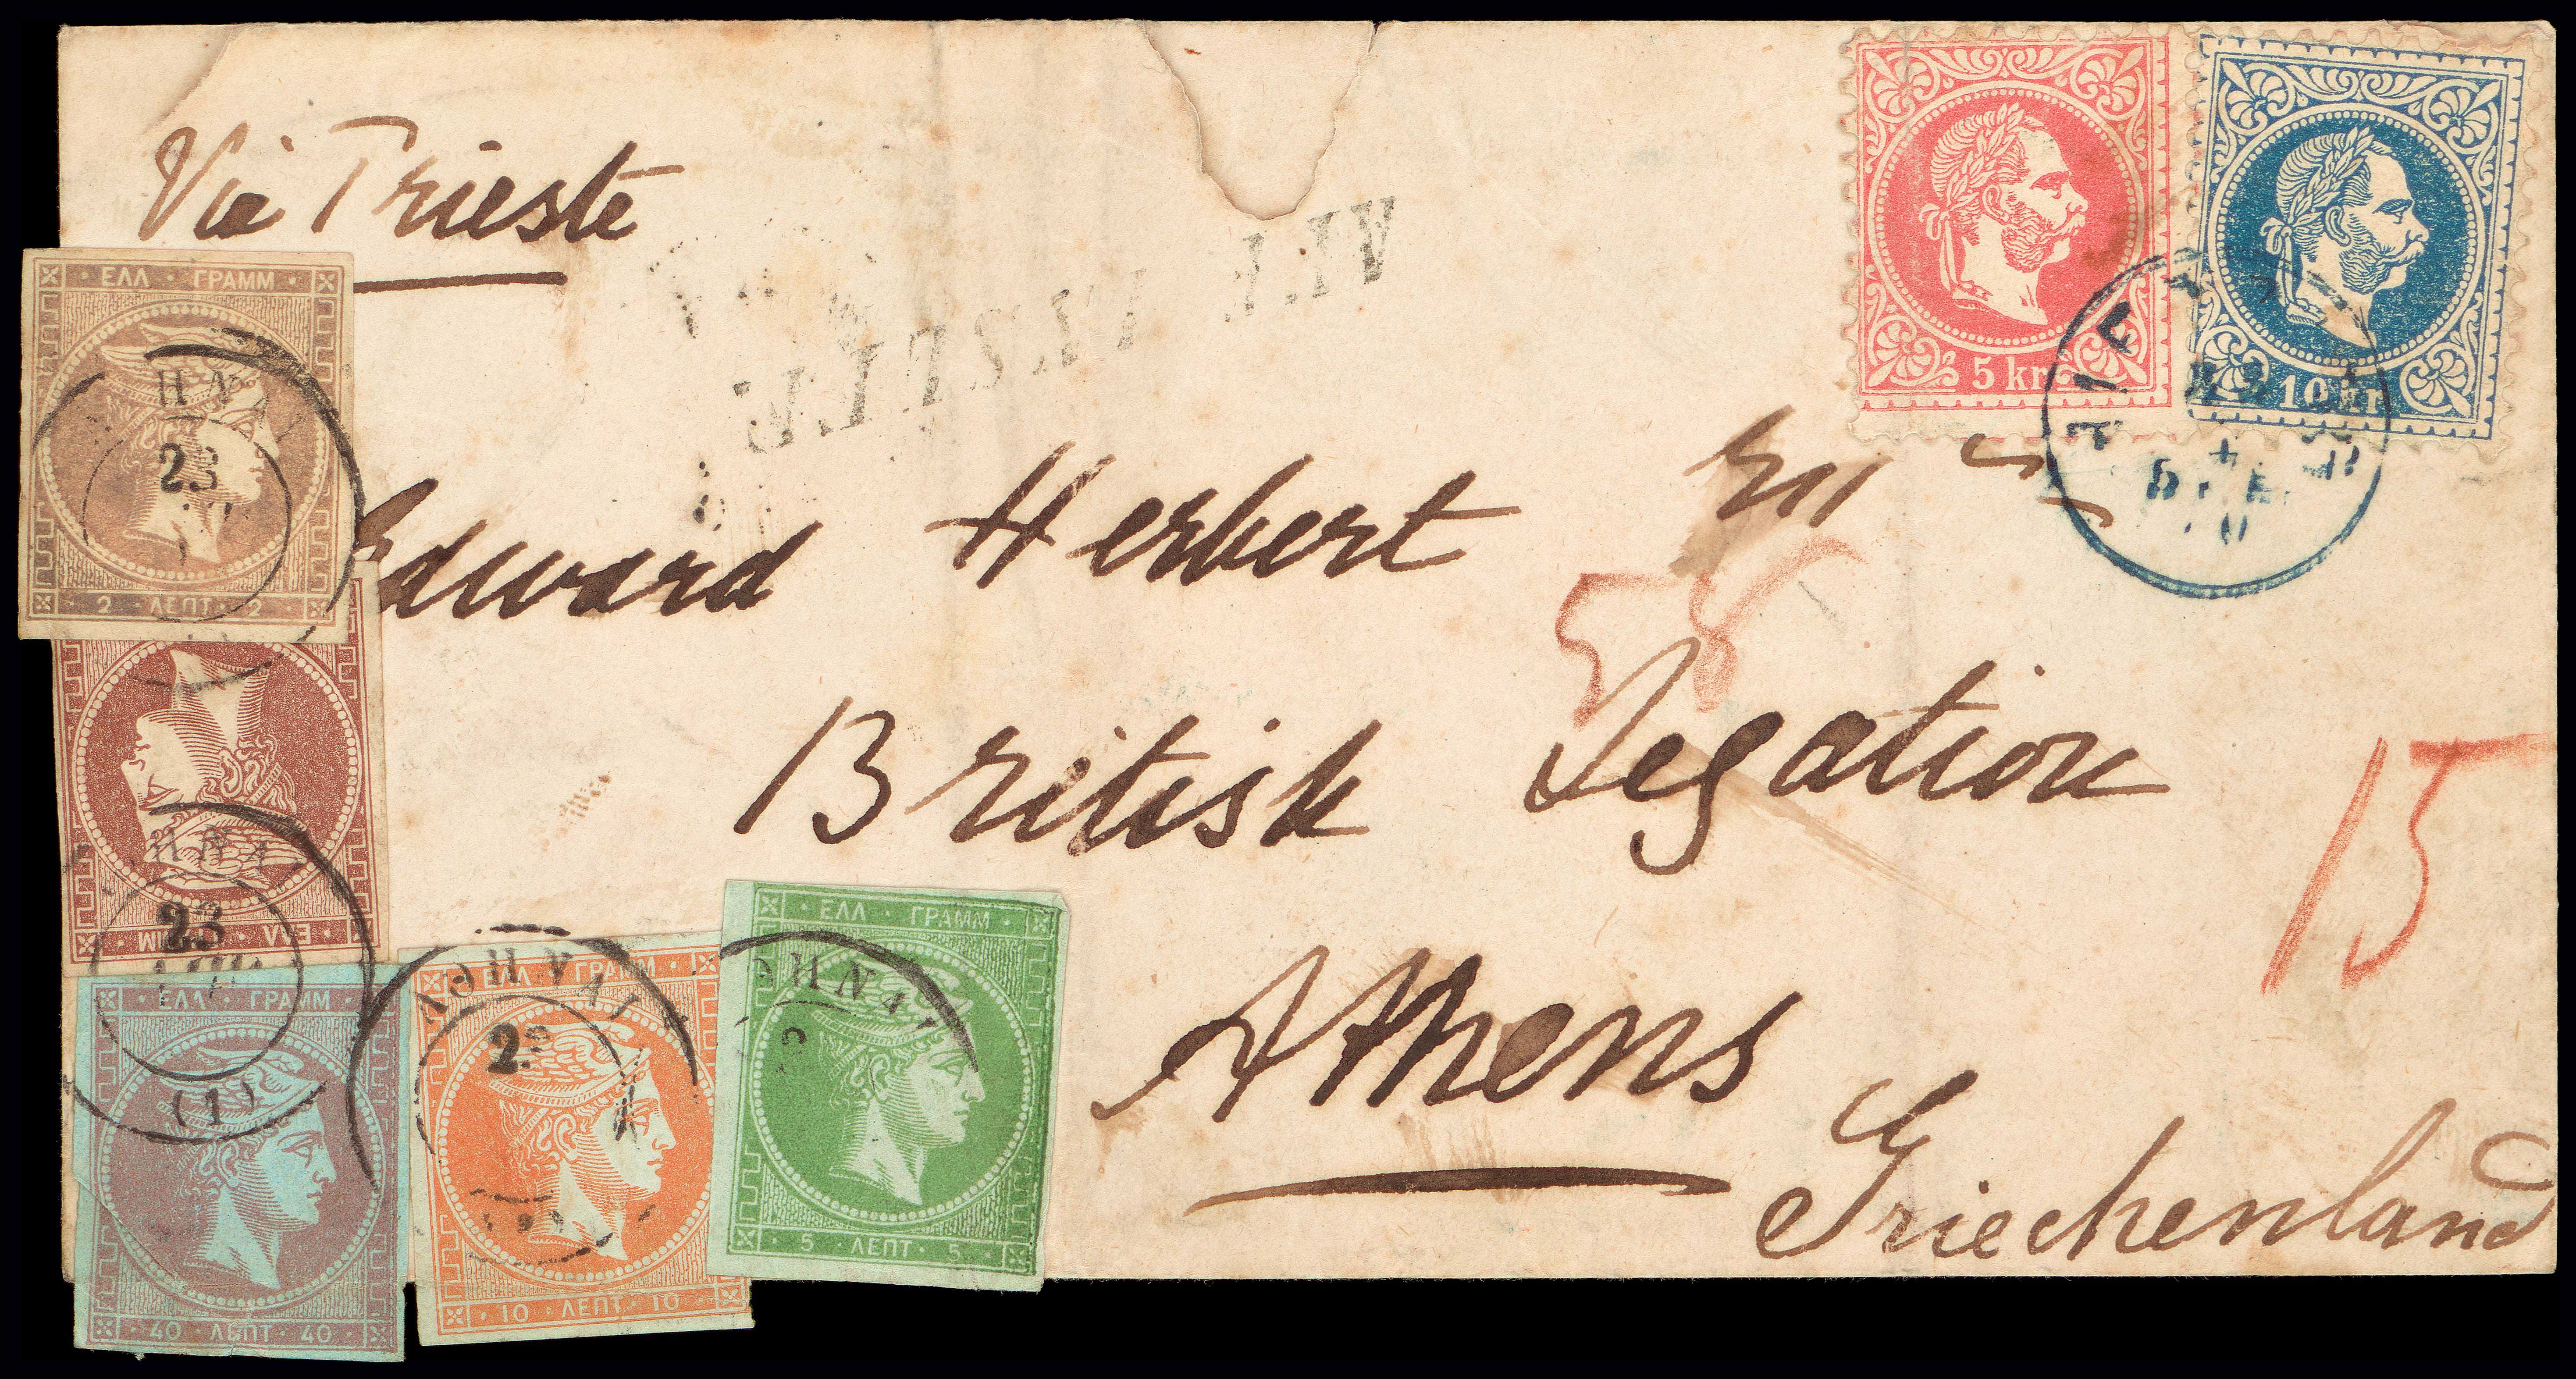 Via Trieste
5 kr
10 kr
ΕΛΛ · ΓΡΑΜΜ
23
2 · ΛΕΠΤ · 2
Edward Herbert
58
British Legation
15
ΕΛΛ · ΓΡΑΜΜ
23
ΕΛΛ · ΓΡΑΜΜ
(1)
40 · ΛΕΠΤ · 40
ΕΛΛ · ΓΡΑΜΜ
ΑΘΗΝΑΙ
10 · ΛΕΠΤ · 10
ΕΛΛ · ΓΡΑΜΜ
ΑΘΗΝΑΙ
5 · ΛΕΠΤ · 5
Athens
Griechenland